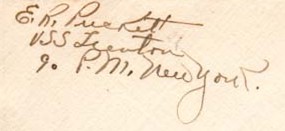 E. R. Puckett
USS Trenton
% P.M. New York.